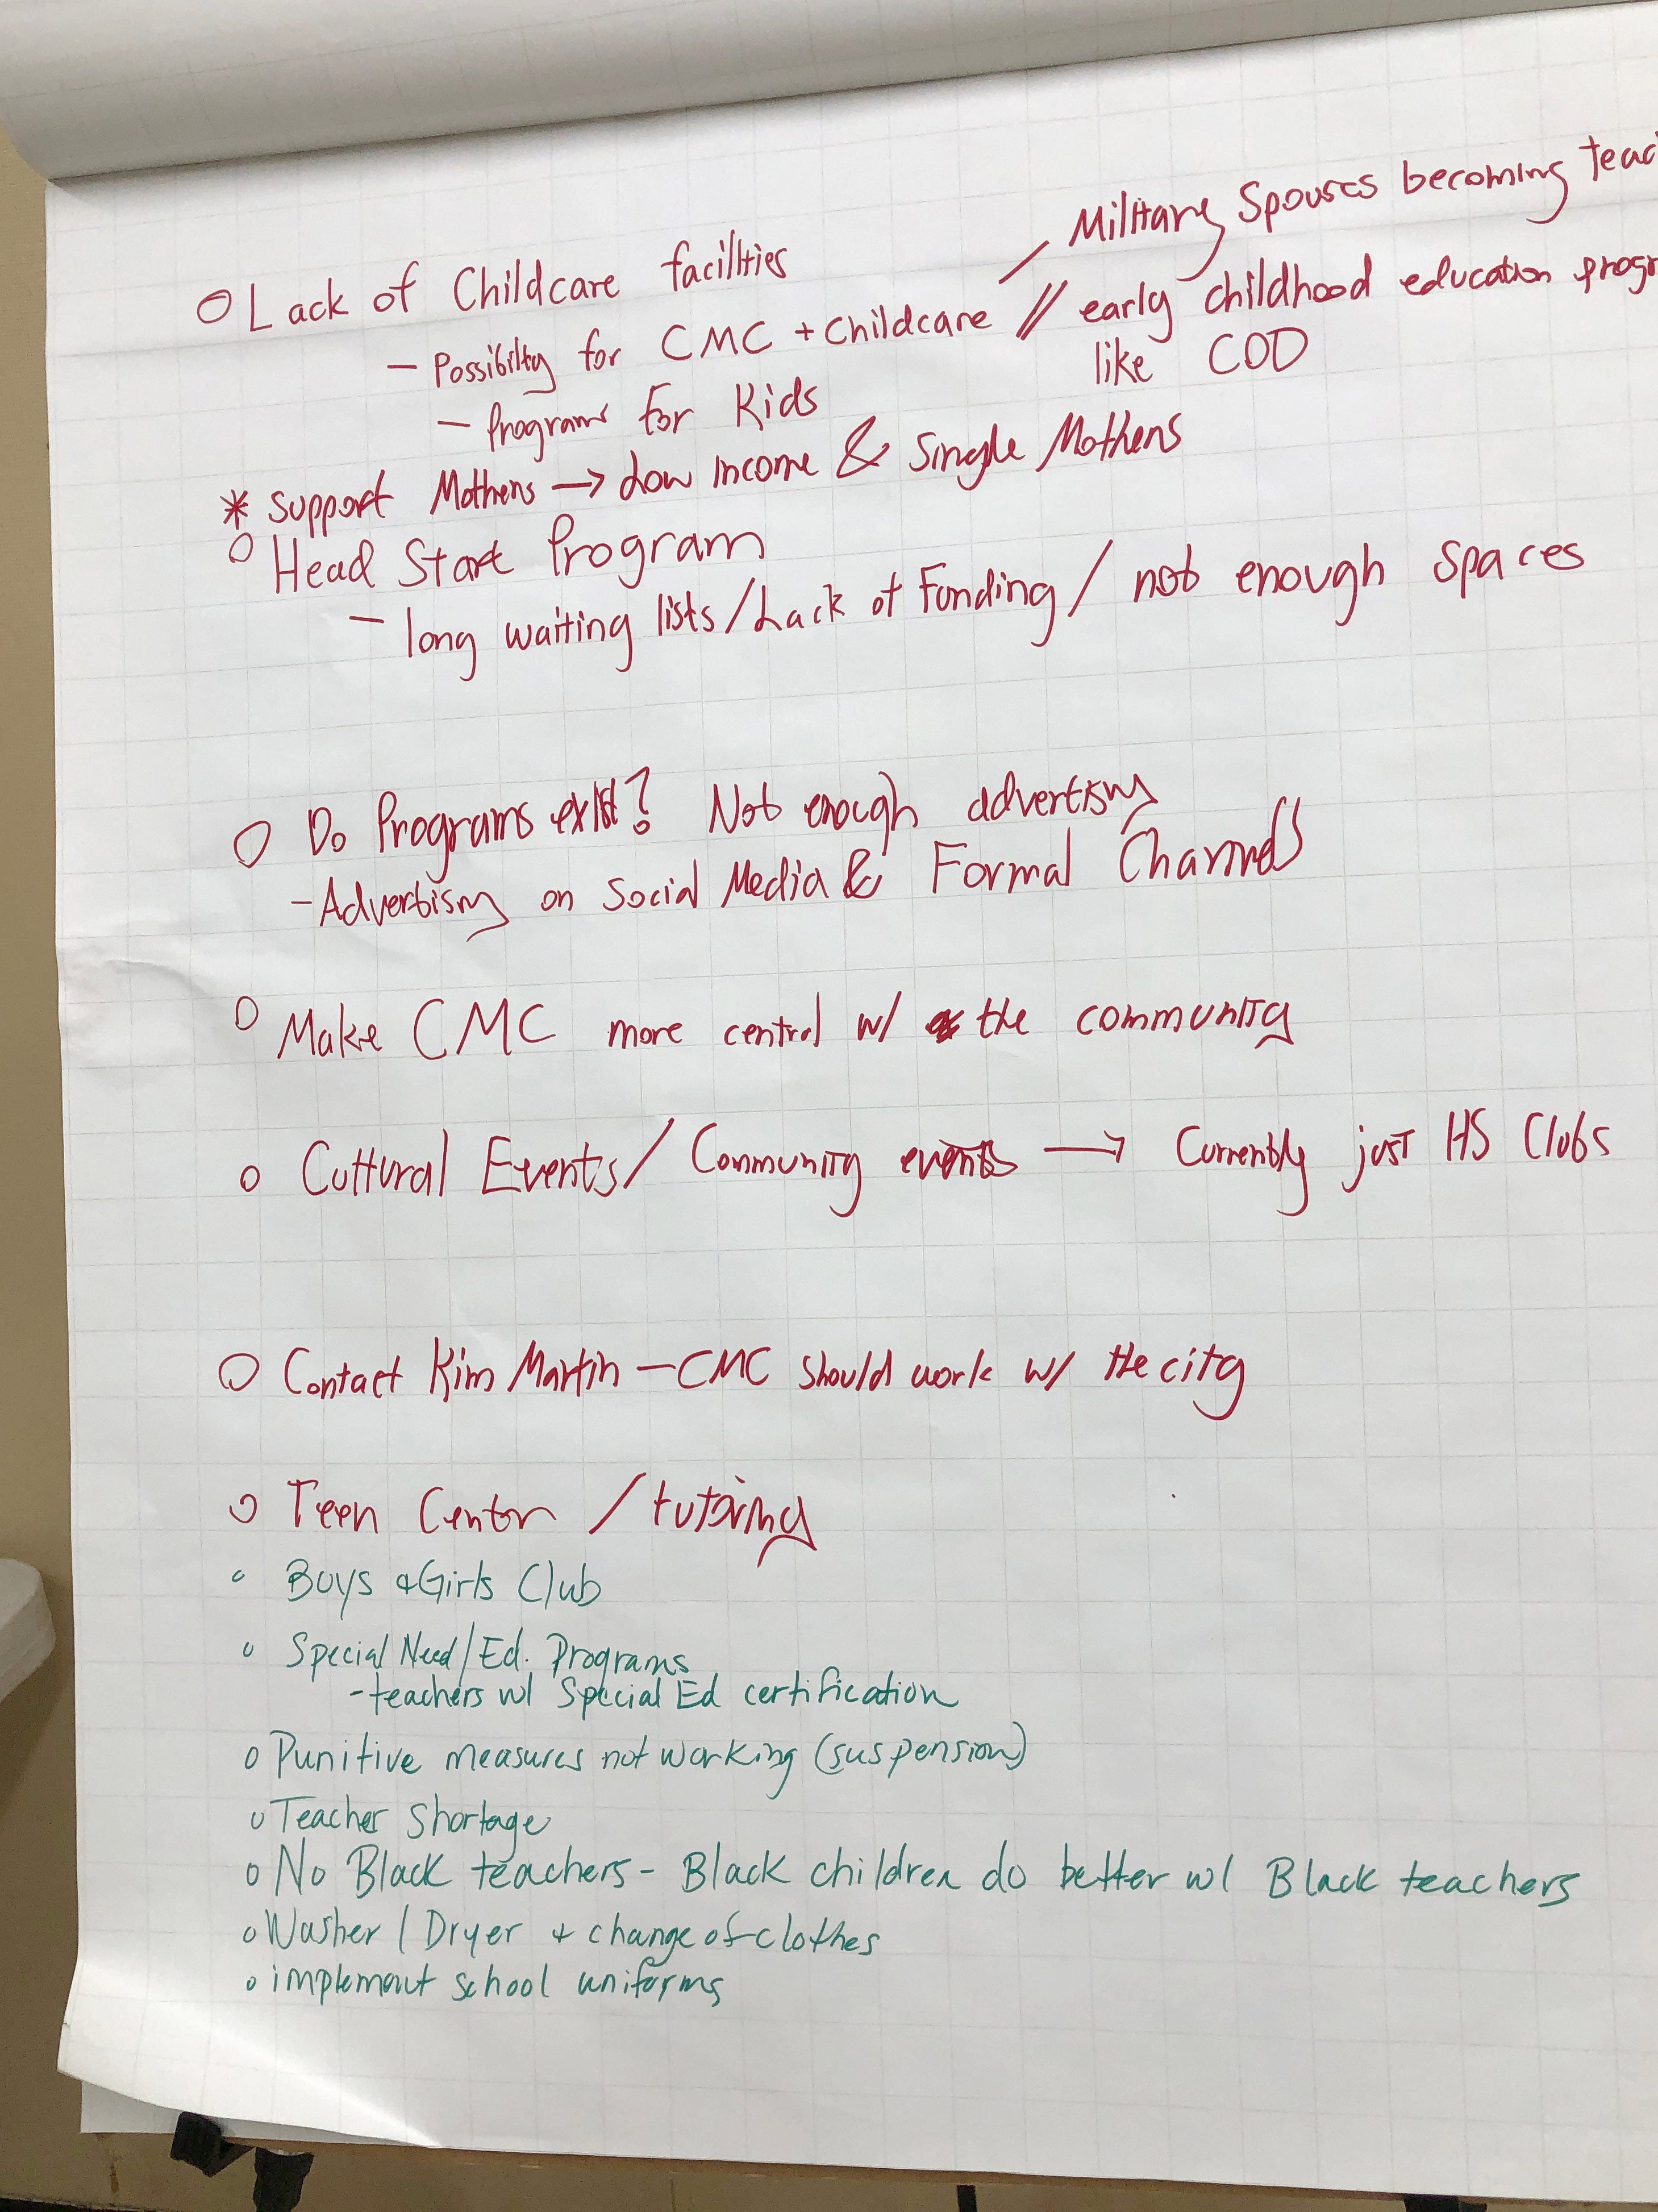 Military Spouses becoming teac
O Lack of Childcare facilities
- Possibility for CMC + Childcare // early childhood education progr
like COD
- Programs for Kids
* Support Mothers → Low income & Single Mothers
O Head Start Program
- long waiting lists / Lack of Funding / not enough spaces
O Do Programs exist? Not enough advertising
- Advertising on Social Media & Formal Channels
O Make CMC more central w/ the community
O Cultural Events / Community events → Currently just HS Clubs
O Contact Kim Martin - CMC should work w/ the city
O Teen Center / tutoring
o Boys & Girls Club
o Special Need/Ed. Programs
- teachers w/ Special Ed certification
o Punitive measures not working (suspension)
o Teacher Shortage
o No Black teachers - Black children do better w/ Black teachers
o Washer / Dryer + change of clothes
o implement school uniforms